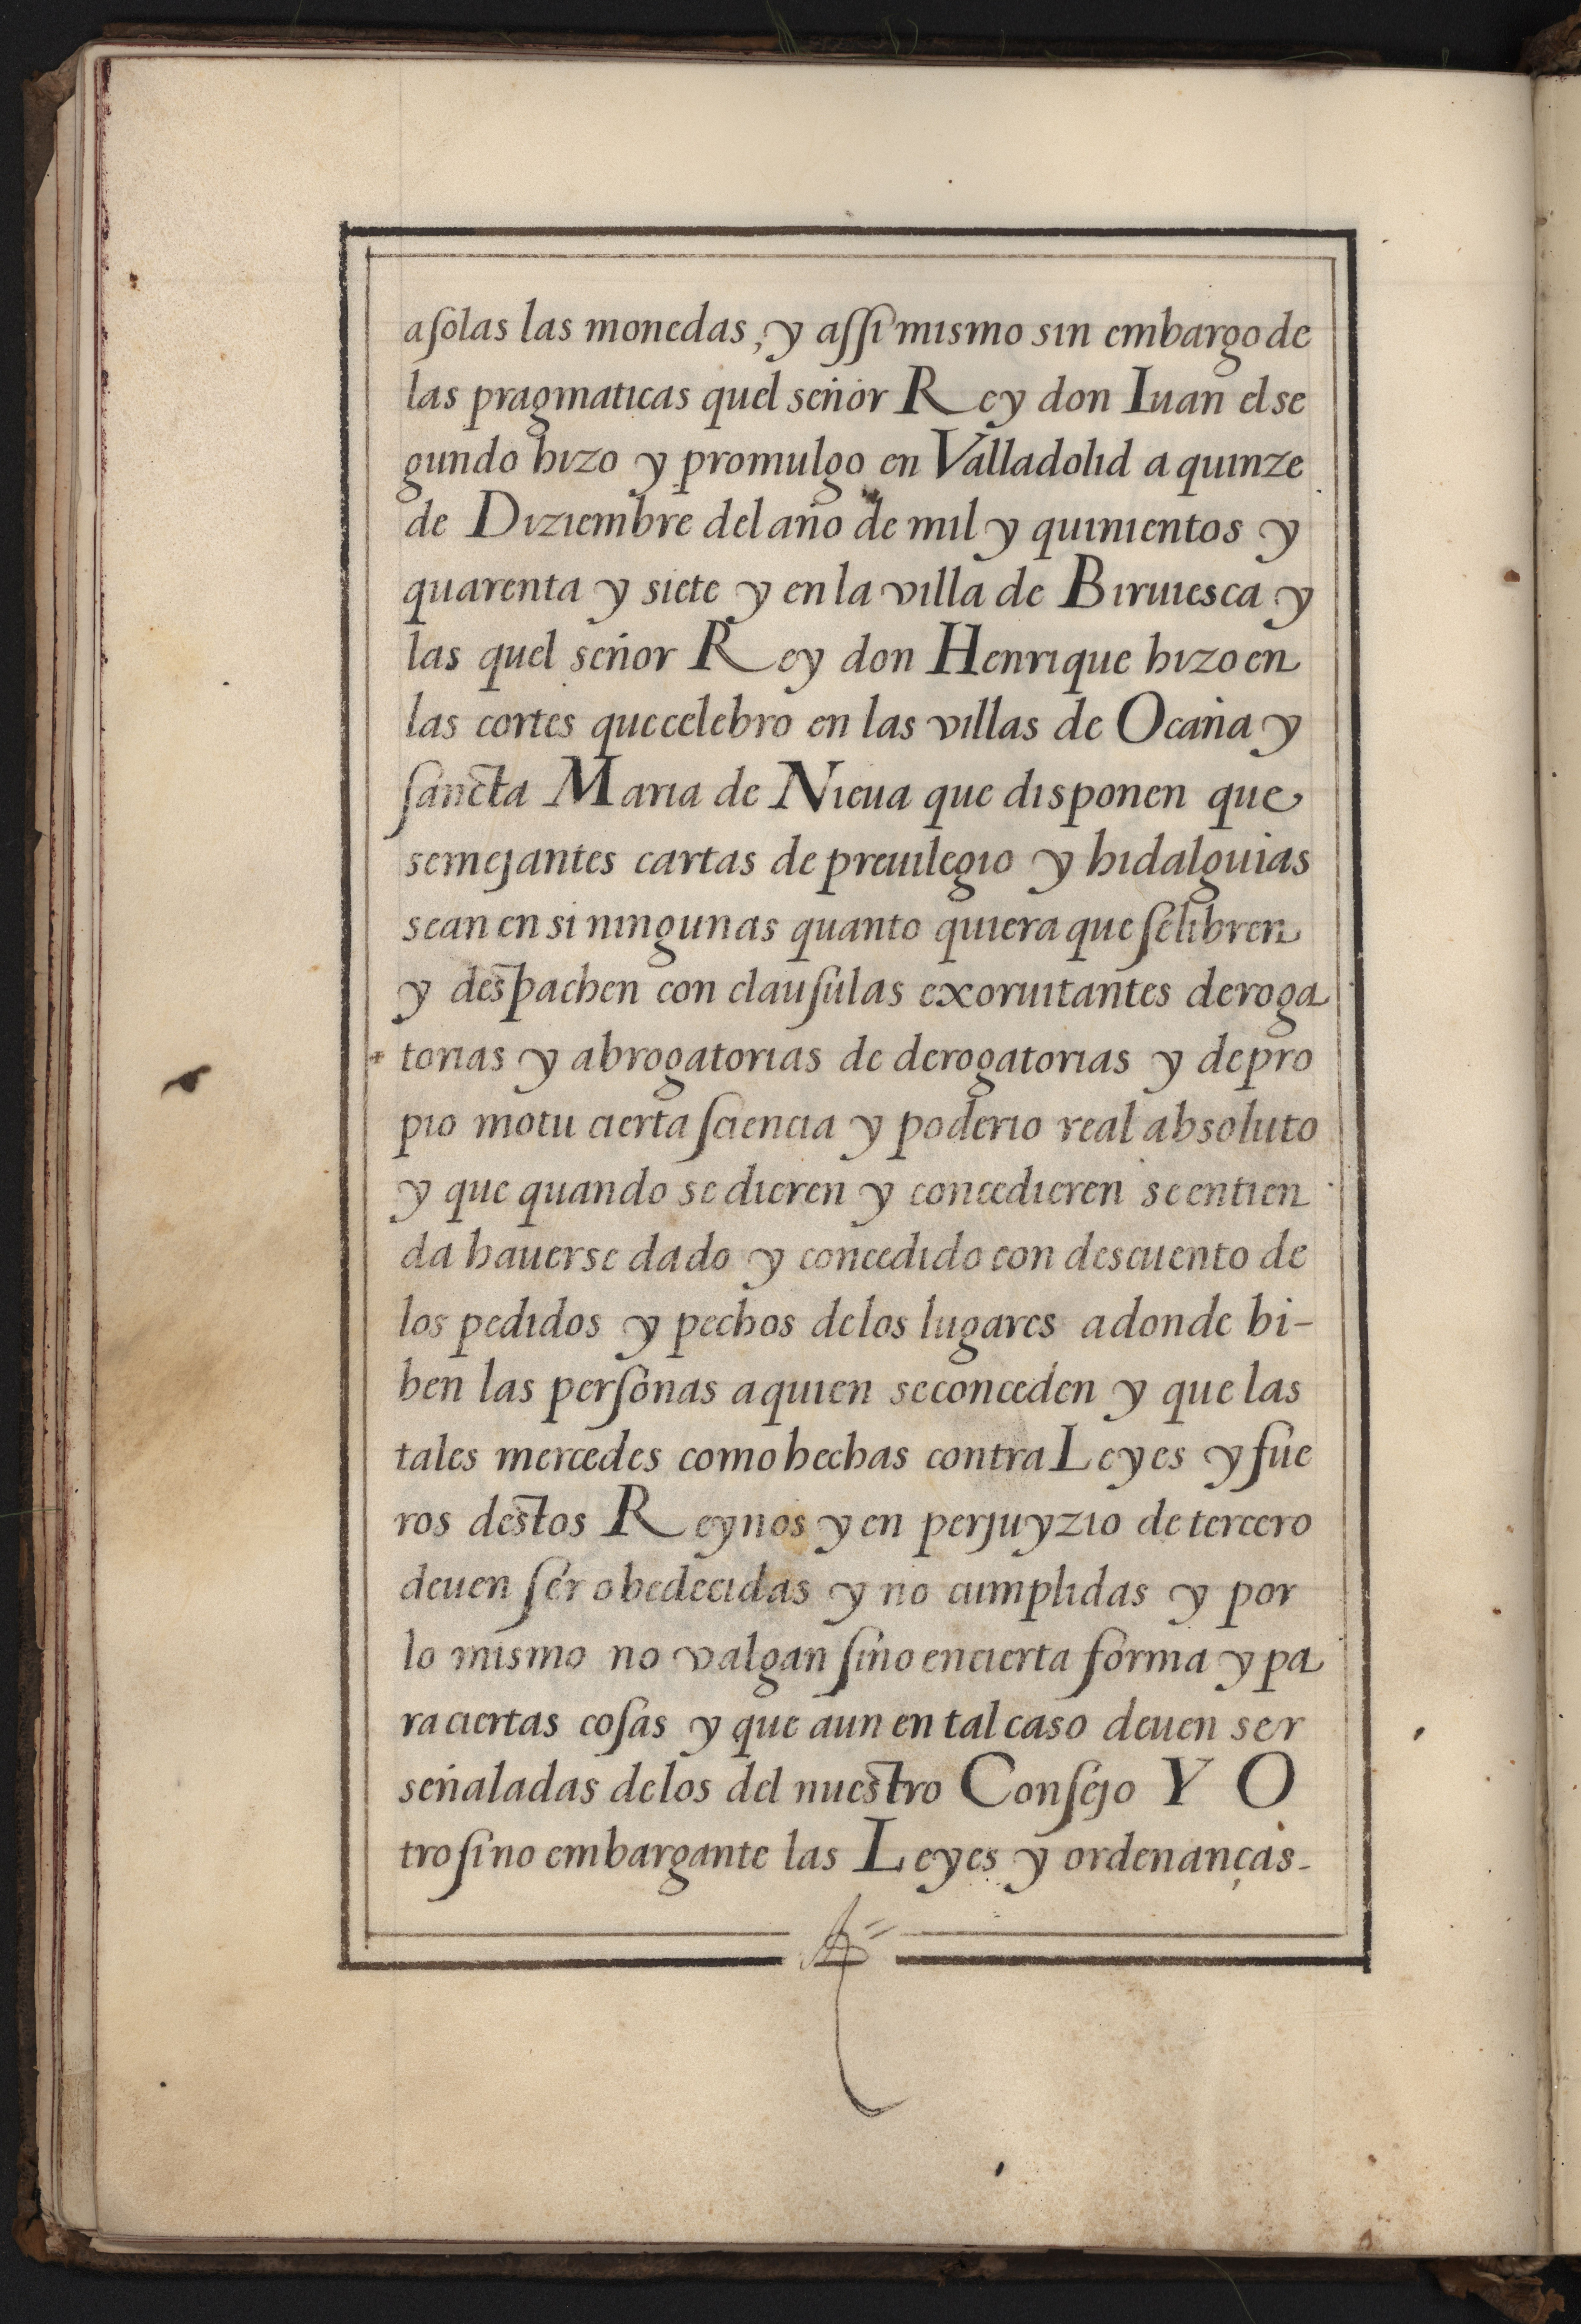 a solas las monedas, y assi mismo sin embargo de
las pragmaticas quel señor Rey don Iuan el se
gundo hizo y promulgo en Valladolid a quinze
de Diziembre del año de mil y quinientos y
quarenta y siete y en la villa de Biruiesca y
las quel señor Rey don Henrique hizo en
las cortes que celebro en las villas de Ocaña y
sancta Maria de Nieua que disponen que
semejantes cartas de preuilegio y hidalguias
sean en si ningunas quanto quiera que se libren
y despachen con clausulas exoruitantes deroga
torias y abrogatorias de derogatorias y de pro
pio motu cierta sciencia y poderio real absoluto
y que quando se dieren y concedieren se entien
da hauerse dado y concedido con descuento de
los pedidos y pechos de los lugares a donde bi-
ben las personas a quien se conceden y que las
tales mercedes como hechas contra Leyes y fue
ros destos Reynos y en perjuyzio de tercero
deuen ser obedecidas y no cumplidas y por
lo mismo no valgan sino en cierta forma y pa
ra ciertas cosas y que aun en tal caso deuen ser
señaladas de los del nuestro Consejo Y O
tro si no embargante las Leyes y ordenanças-